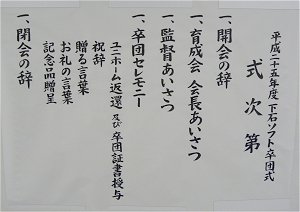 平成二十五年度 下石ソフト卒団式
式次第
一、開会の辞
一、育成会 会長あいさつ
一、監督あいさつ
一、卒団セレモニー
ユニホーム返還 及び 卒団証書授与
祝辞
贈る言葉
お礼の言葉
記念品贈呈
一、閉会の辞